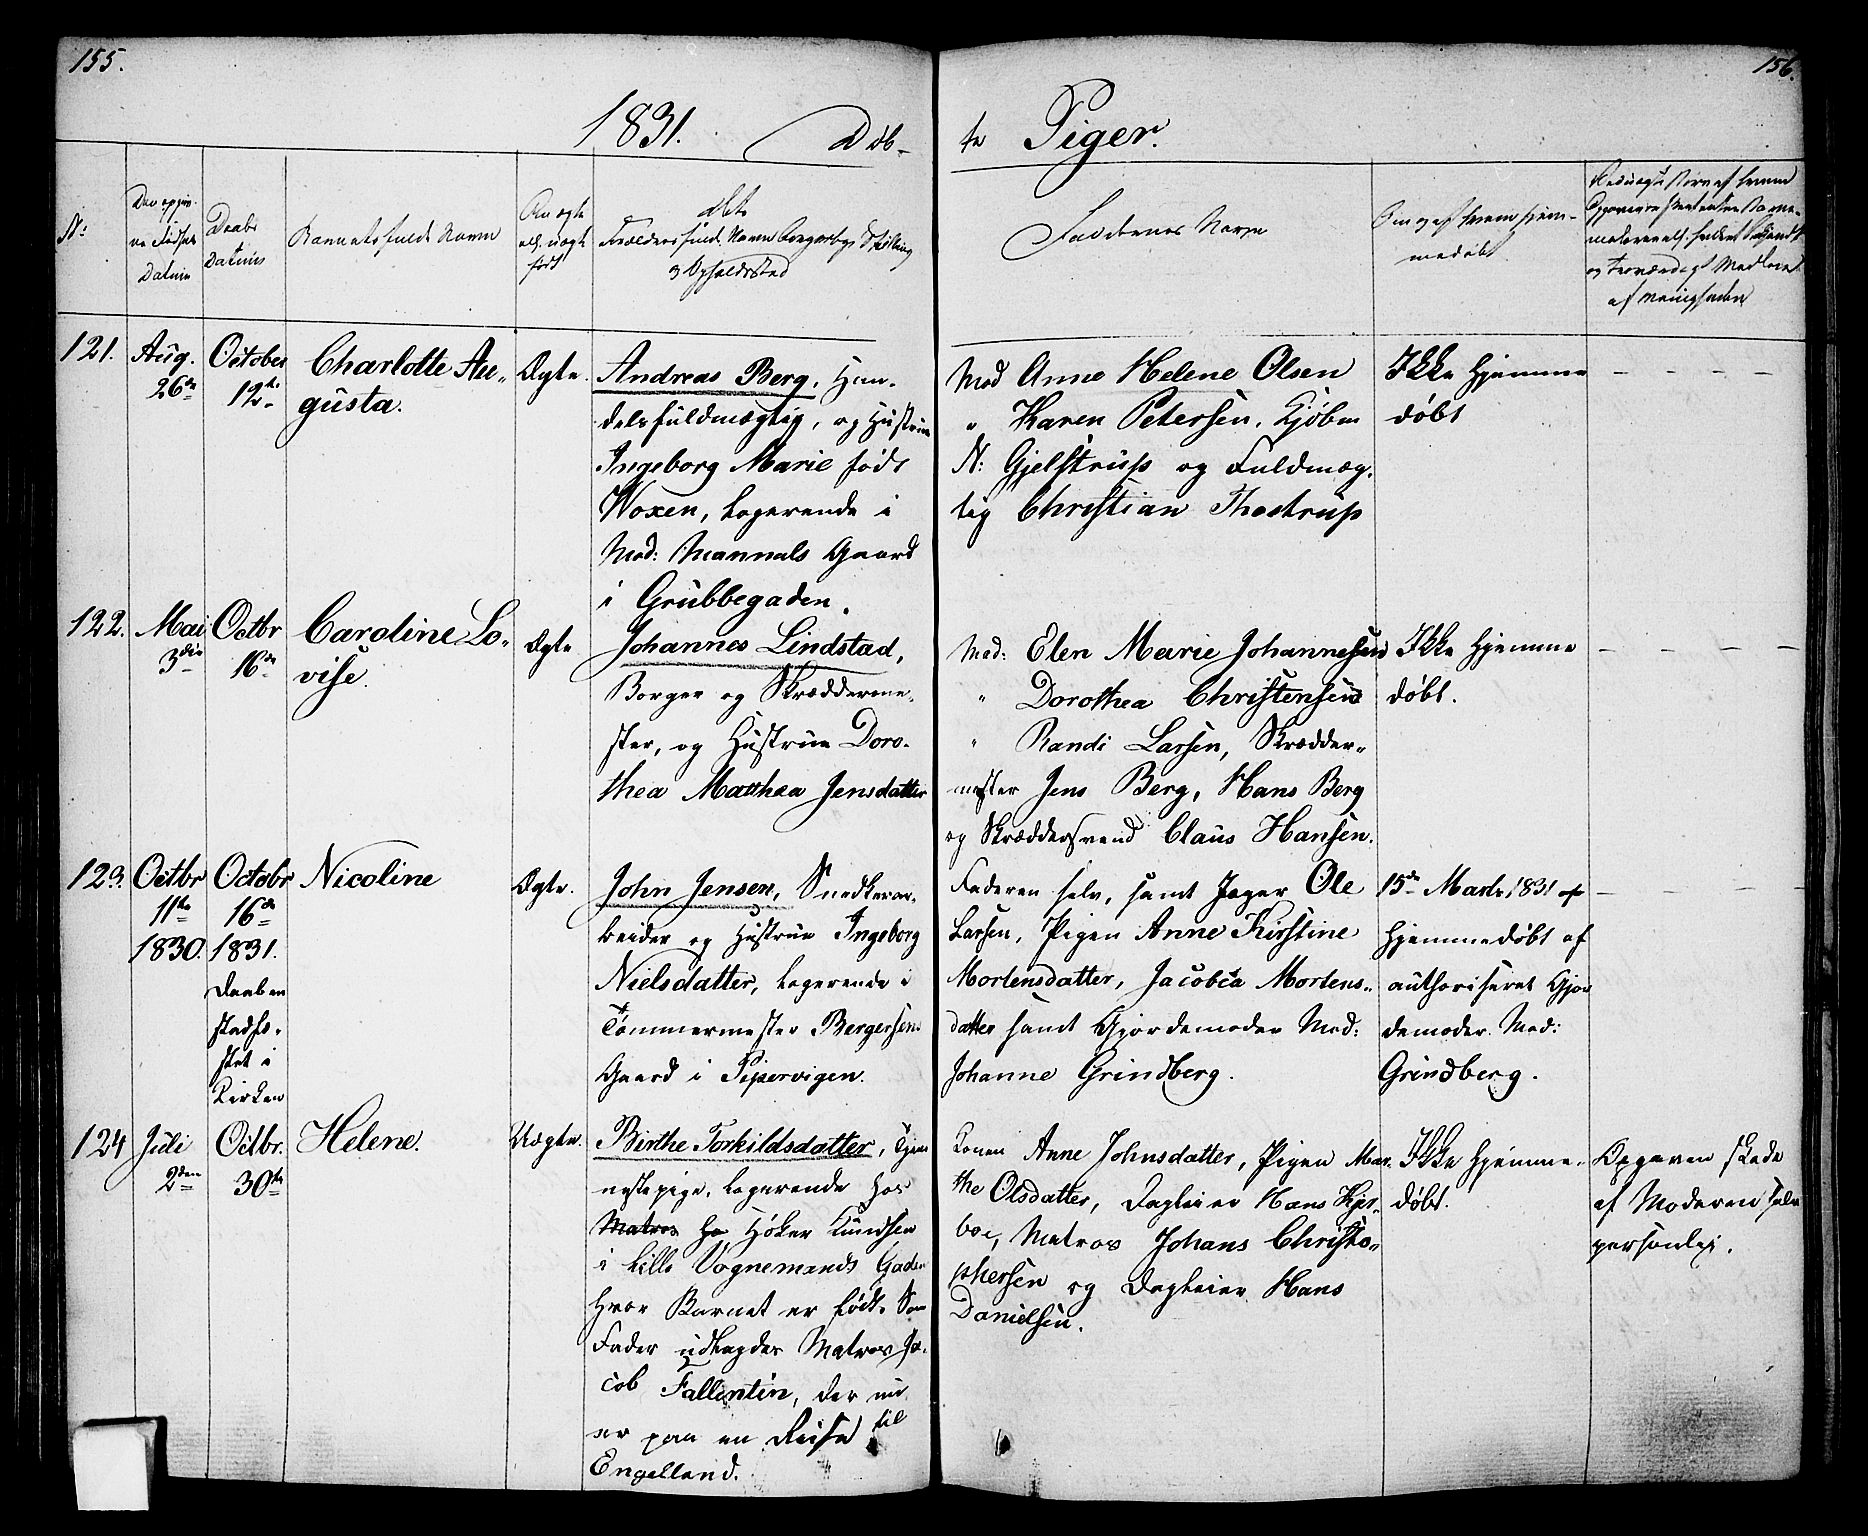 155.
156.
1831. Døb-
te Piger.
N:
Den opgiv-
ne Fødsels
Datum
Daabs
Datum
Barnets fulde Navn
Om ægte
ell. uægte
født
Forældres fulde Navn Borgerlige Stilling
og Opholdssted
Faddernes Navn
Om og af hvem hjem-
medøbt
af Menigheden
121.
Aug.
26de
October
12te
Charlotte Au-
gusta.
Ægte.
Andreas Berg, Han-
delsfuldmægtig, og Hustrue
Ingeborg Marie fød
Woxen, Logerende i
Mad: Mannals Gaard
i Grubbegaden.
Mad Anne Helene Olsen
" Karen Petersen, Kjøbm
N: Gjelstrup og Fuldmæg-
tig Christian Thostrup
Ikke Hjemme
døbt
122.
Mai
3die
Octbr
16de
Caroline Lo-
vise.
Ægte
Johannes Lindstad,
Borger og Skrædderme-
ster, og Hustrue Doro-
thea Matthea Jensdatter
Mad: Elen Marie Johannesen
" Dorothea Christensen
" Randi Larsen, Skrædder-
mester Jens Berg, Hans Berg
og Skræddersvend Claus Hansen.
Ikke Hjemme
døbt.
123.
Octbr
11te
1830.
Octobr
16de
1831.
Daaben
stadfæ-
stet i
Kirken
Nicoline
Ægte.
John Jensen, Snedkerar-
beider og Hustrue Ingeborg
Nielsdatter, Logerende i
Tømmermester Bergersens
Gaard i Pipervigen.
Faderen selv, samt Jager Ole
Larsen, Pigen Anne Kirstine
Mortensdatter, Jacobea Mortens-
datter samt Gjordemoder Mad:
Johanne Grindberg.
15de Marts 1831
Hjemmedøbt af
authoriseret Gjor
demoder Mad:
Grindberg.
124
Juli
2den
Octbr.
30te
Helene.
Uægte.
Birthe Torkildsdatter, Tjene
nestepige, Logerende hos
Matros Høker Knudsen
i Lille Vognemands Gaden
hvor Barnet er født. Som
Fader udlægdes Matros Ja-
cob Fallentin, der nu
er paa en Reise til
Engelland.
Konen Anne Johnsdatter, Pigen Mar-
the Olsdatter, Dagleier Hans Kjer-
boe, Matros Johans Christo-
phersen og Dagleier Hans
Danielsen.
Ikke Hjemme-
døbt.
Opgaven skede
af Moderen selv
personlig.